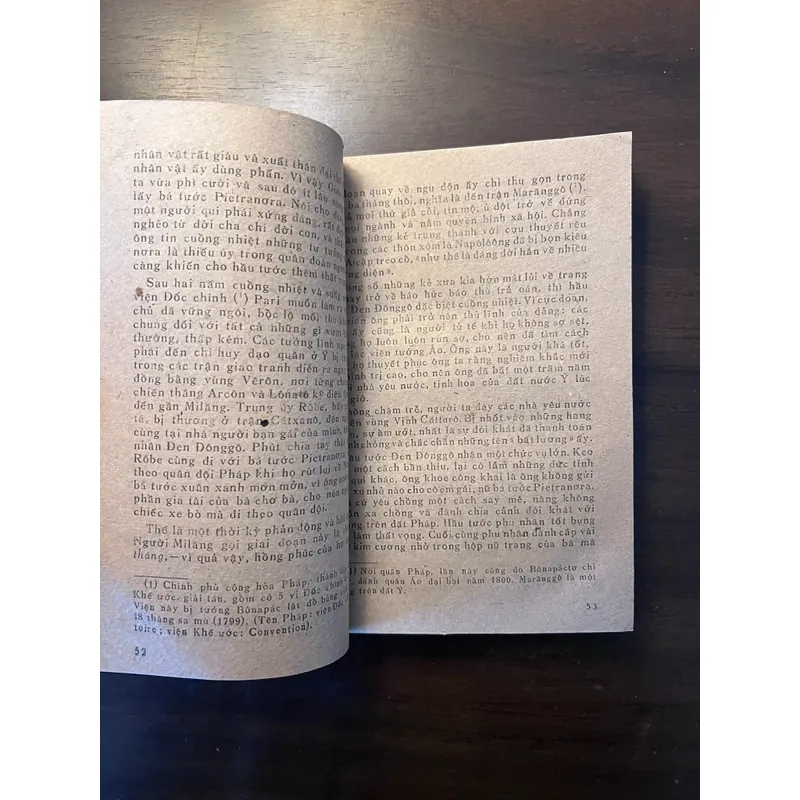 nhân vật rất giàu và xuất thân đại
nhân vật ấy dùng phấn. Vì vậy
ta vừa phì cười và sau đó ít lâu
lấy bá tước Pietranơra. Nói cho
một người quí phái xứng đáng, rất
nghèo từ đời cha chí đời con, và
ông tin cuồng nhiệt những tư tưởng
nơra là thiếu úy trong quân đoàn
càng khiến cho hầu tước thêm thất
Sau hai năm cuồng nhiệt và sung
viện Đốc chính (¹) Pari muốn làm
chủ đã vững ngôi, bộc lộ mối thù
chung đối với tất cả những gì
thường, thấp kém. Các tướng lĩnh
phái đến chỉ huy đạo quân ở Ý bị
trong các trận giao tranh diễn ra
đồng bằng vùng Vêrôn, nơi từng
chiến thắng Arcôn và Lônatô kỳ diệu
đến gần Milăng. Trung úy Rôbe, bấy
tá, bị thương ở trận Catxanô, đến
cùng tại nhà người bạn gái của mình,
nhân Đen Đônggô. Phút chia tay thật
Rôbe cùng đi với bá tước Pietranơra
theo quân đội Pháp khi họ rút lui về
bá tước xuân xanh mơn mởn, vì ông anh
phần gia tài của bà cho bà, cho nên
chiếc xe bò mà đi theo quân đội.
Thế là một thời kỳ phản động và
Người Milăng gọi giai đoạn này là
tháng,—vì quả vậy, hồng phúc của họ
(1) Chính phủ cộng hòa Pháp, thành lập
Khế ước giải tán, gồm có 5 vị Đốc chính
Viện này bị tướng Bônapác lật đổ bằng
18 tháng sa mù (1799). (Tên Pháp: viện Đốc
toire; viện Khế ước: Convention).
52
quay về ngu độn ấy chỉ thu gọn trong
ba tháng thôi, nghĩa là đến trận Marănggô (¹).
mọi thứ già cỗi, tin mộ, ủ dột trở về đứng
mọi ngành và nắm quyền bính xã hội. Chẳng
những kẻ trung thành với cựu thuyết rêu
trong các thôn xóm là Napôlêông đã bị bọn kiêu
Aicập treo cổ, «như thế là đáng đời hắn về nhiều
diện».
số những kẻ xưa kia hờn mát lui về trang
trở về háo hức báo thù trả oán, thì hầu
Đen Đônggô đặc biệt cuồng nhiệt. Vì cực đoan,
nhiên ông phải trở nên thủ lĩnh của đảng: các
ấy cũng là người tử tế khi họ không sợ sệt,
họ luôn luôn run sợ, cho nên đã tìm cách
lạc viên tướng Áo. Ông này là người khá tốt,
họ thuyết phục ông ta rằng nghiêm khắc mới
chính trị cao, cho nên ông đã bắt một trăm năm
nhà yêu nước, tinh hoa của đất nước Ý lúc
giờ.
không chậm trễ, người ta đày các nhà yêu nước
đến vùng Vịnh Cattarô. Bị nhốt vào những hang
sự ẩm ướt, nhất là sự đói khát đã thanh toán
nhanh chóng và chắc chắn những tên «bất lương» ấy.
tước Đen Đônggô nhận một chức vụ lớn. Keo
một cách bần thỉu, lại có lắm những đức tính
quí khác, ông khoe công khai là ông không gửi
xu nhỏ nào cho cô em gái, nữ bá tước Pietranơra.
cứ yêu chồng một cách say mê, nàng không
xa chồng và đành chia cảnh đói khát với
trên đất Pháp. Hầu tước phu nhân tốt bụng
lắm thất vọng. Cuối cùng phu nhân đánh cắp vài
kim cương nhỏ trong hộp nữ trang của bà mà
1) Nơi quân Pháp, lần này cũng do Bônapáctơ chỉ
, đánh quân Áo đại bại năm 1800. Marănggô là một
trên đất Ý.
53